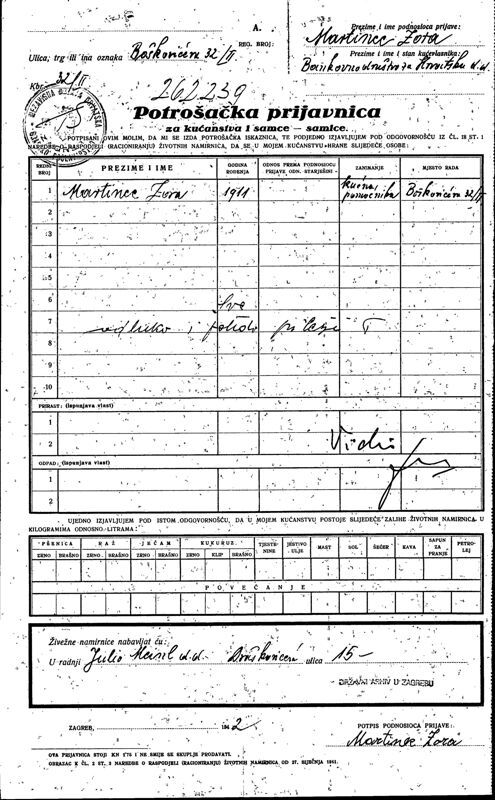 A.
Prezime i ime podnosioca prijave:
Martinec Zora
Ulica, trg ili ina oznaka Boškovićeva 32/II
REG. BROJ:
Prezime i ime i stan kućevlasnika:
društvo za Hrvatsku d.d.
Kbr. 32/II
262239
Potrošačka prijavnica
za kućanstva i samce — samice.
POTPISANI OVIM MOLIM, DA MI SE IZDA POTROŠAČKA ISKAZNICA, TE PODJEDNO IZJAVLJUJEM POD ODGOVORNOŠĆU IZ ČL. 18 ST. 1
NAREDBE O RASPODJELI (RACIONIRANJU) ŽIVOTNIH NAMIRNICA, DA SE U MOJEM KUĆANSTVU HRANE SLIJEDEĆE OSOBE:
REDNI BROJ PREZIME I IME GODINA ROĐENJA ODNOS PREMA PODNOSIOCU PRIJAVE ODN. STARJEŠINI ZANIMANJE MJESTO RADA
1 Martinec Zora 1911 kućna pomoćnica Boškovićeva 32/II
2
3
4
5
6
7
8
9
10
PRIRAST: (ispunjava vlast)
1
2
ODPAD: (ispunjava vlast)
1
2
UJEDNO IZJAVLJUJEM POD ISTOM ODGOVORNOŠĆU, DA U MOJEM KUĆANSTVU POSTOJE SLIJEDEĆE ZALIHE ŽIVOTNIH NAMIRNICA U
KILOGRAMIMA ODNOSNO LITRAMA:
PŠENICA RAŽ JEČAM KUKURUZ TJESTENINE JESTIVO ULJE MAST SOL ŠEĆER KAVA SAPUN ZA PRANJE PETROLEJ
ZRNO BRAŠNO ZRNO BRAŠNO ZRNO BRAŠNO ZRNO KLIP BRAŠNO
POVEĆANJE
Živežne namirnice nabavljat ću:
U radnji Julio Meinl d.d. Boškovićeva ulica 15-
DRŽAVNI ARHIV U ZAGREBU
ZAGREB, 1942
POTPIS PODNOSIOCA PRIJAVE:
Martinec Zora
OVA PRIJAVNICA STOJI KN 0.75 I NE SMIJE SE SKUPLJE PRODAVATI.
OBRAZAC K ČL. 2 ST. 3 NAREDBE O RASPODJELI (RACIONIRANJU) ŽIVOTNIH NAMIRNICA OD 27. SIJEČNJA 1941.